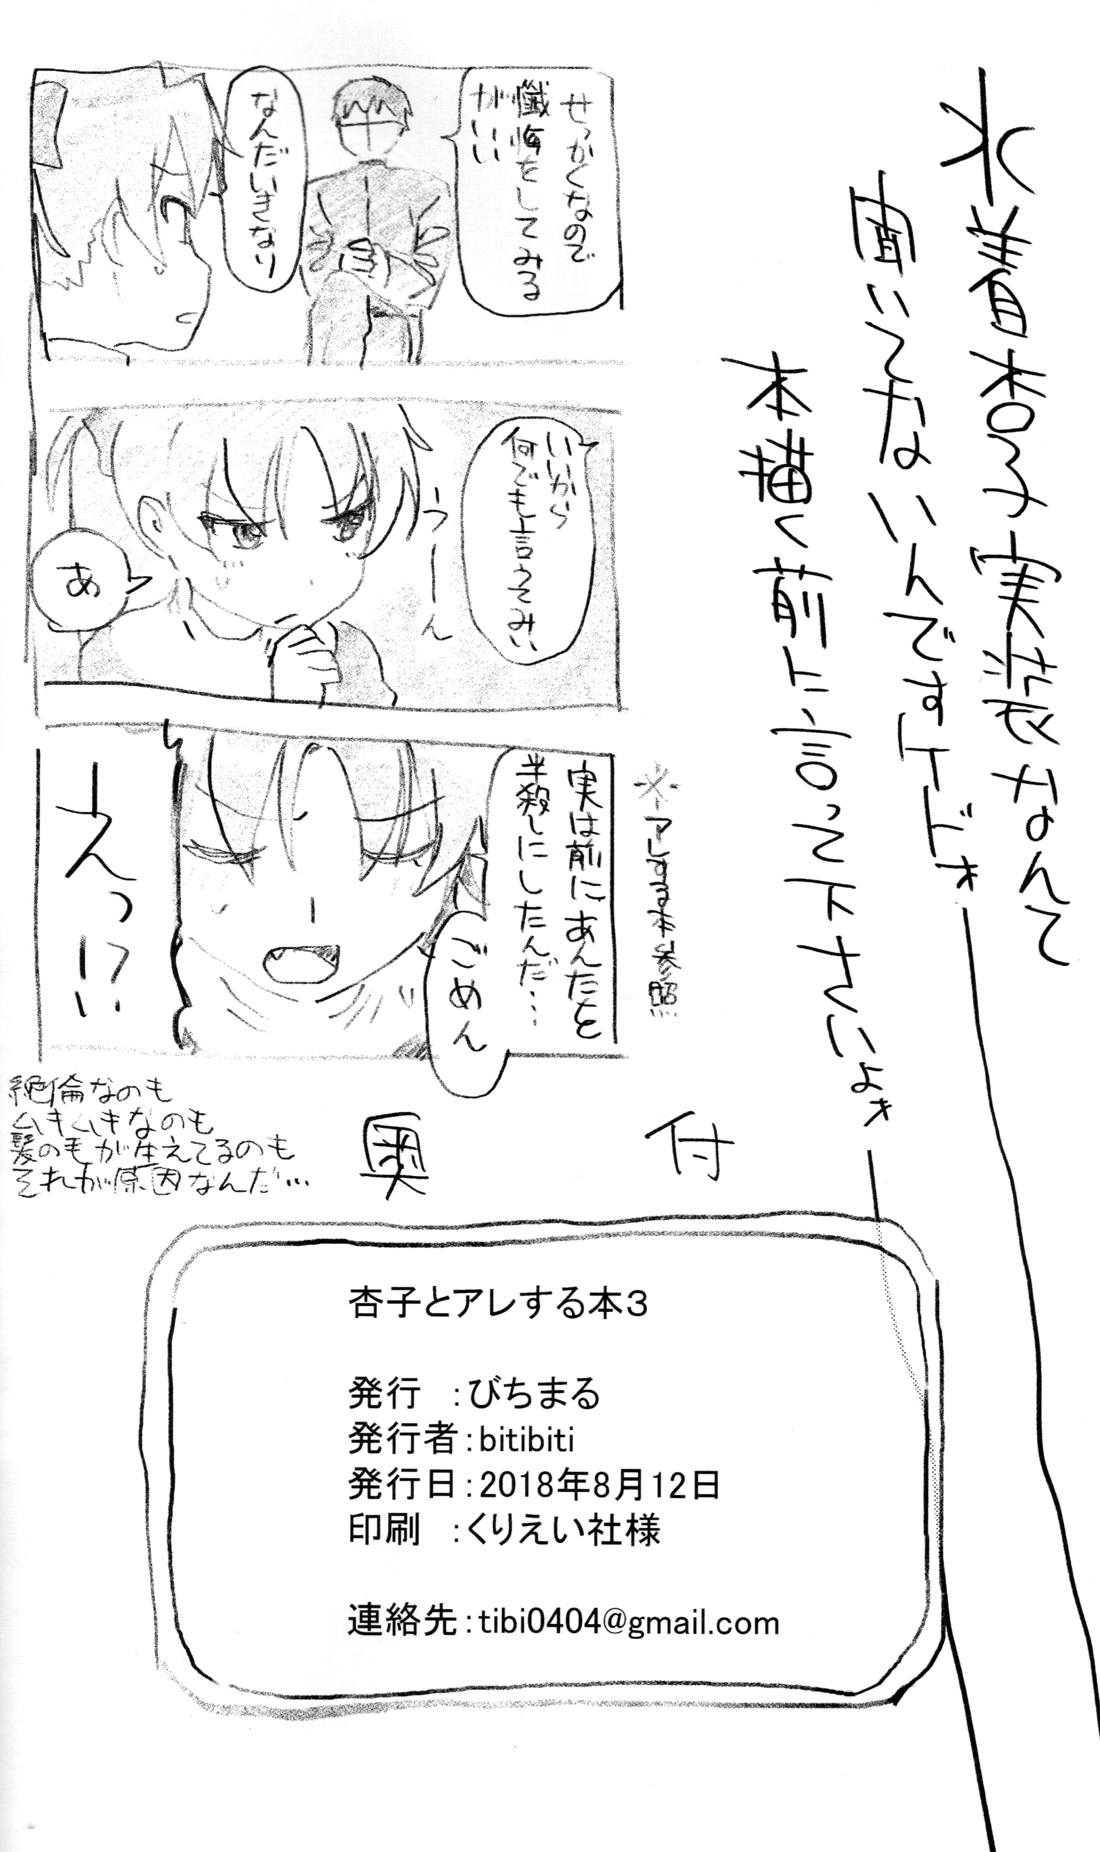 水着杏子実装なんて
聞いてないんですケドォ
本描く前に言って下さいよォ
せっかくなので
懺悔をしてみる
がいい
なんだいきなり
いいから
何でも言ってみい
うーーん
あ
※アレする本参照
実は前にあんたを
半殺しにしたんだ…
ごめん
えっ!?
絶倫なのも
ムキムキなのも
髪の毛が生えてるのも
それが原因なんだ…
奥付
杏子とアレする本3
発行 :びちまる
発行者:bitibiti
発行日:2018年8月12日
印刷 :くりえい社様
連絡先:tibi0404@gmail.com